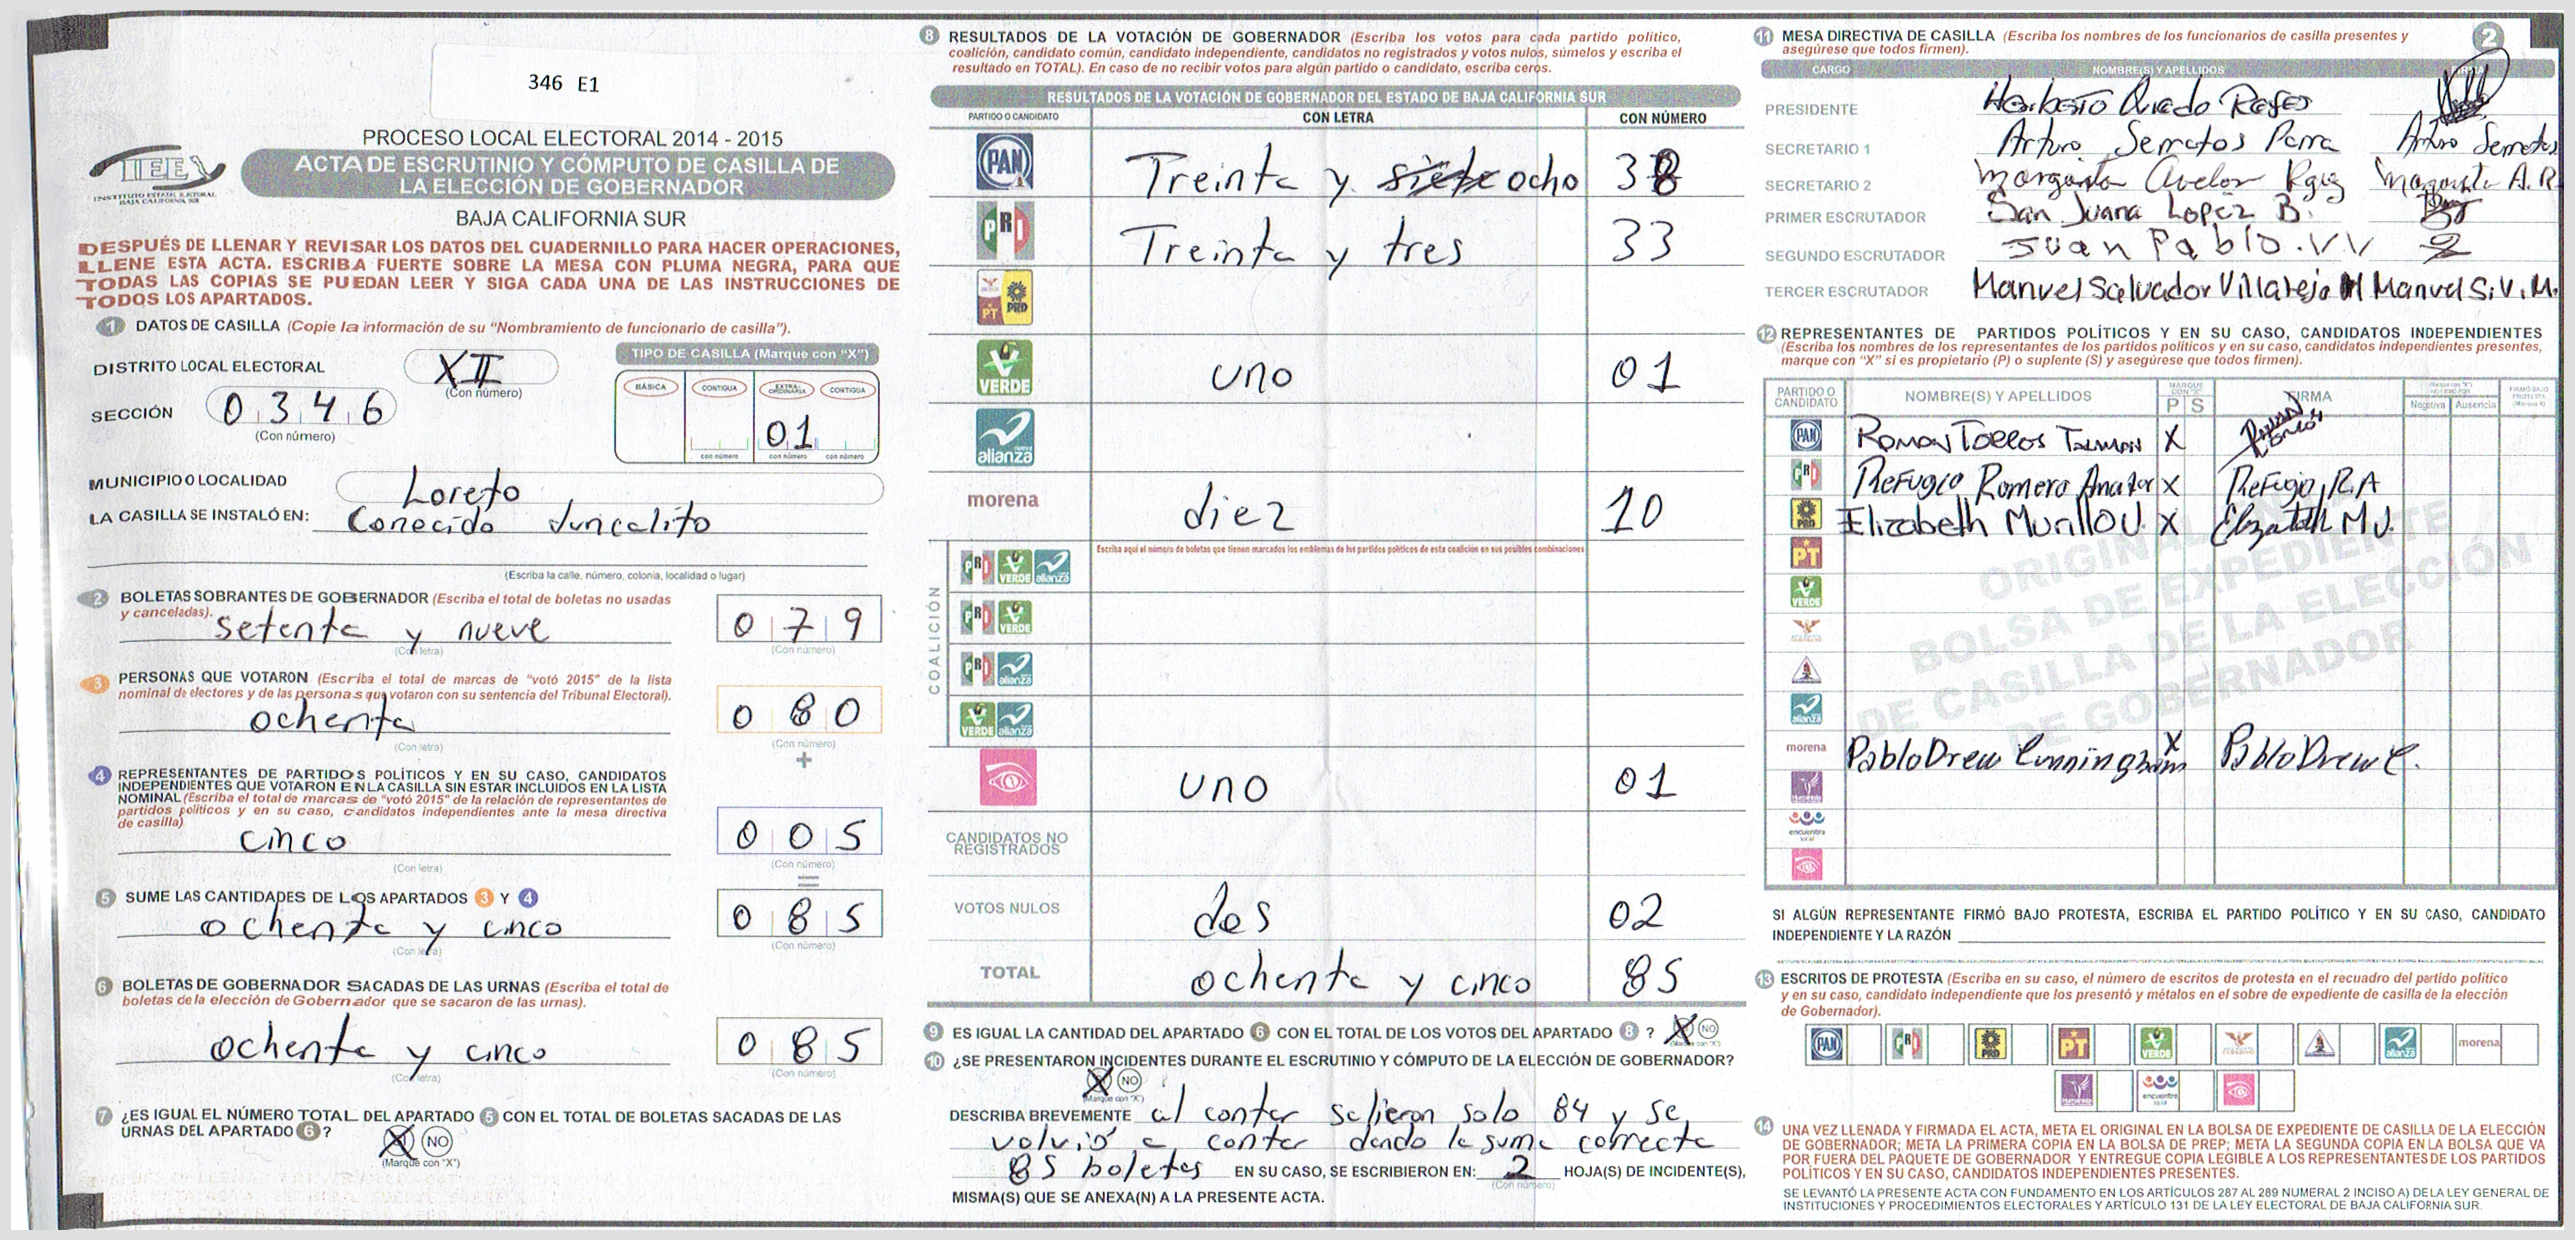 346 E1
PROCESO LOCAL ELECTORAL 2014 - 2015
IEE
INSTITUTO ESTATAL ELECTORAL
BAJA CALIFORNIA SUR
ACTA DE ESCRUTINIO Y CÓMPUTO DE CASILLA DE
LA ELECCIÓN DE GOBERNADOR
BAJA CALIFORNIA SUR
DESPUÉS DE LLENAR Y REVISAR LOS DATOS DEL CUADERNILLO PARA HACER OPERACIONES,
LLENE ESTA ACTA. ESCRIBA FUERTE SOBRE LA MESA CON PLUMA NEGRA, PARA QUE
TODAS LAS COPIAS SE PUEDAN LEER Y SIGA CADA UNA DE LAS INSTRUCCIONES DE
TODOS LOS APARTADOS.
1 DATOS DE CASILLA (Copie la información de su “Nombramiento de funcionario de casilla”).
DISTRITO LOCAL ELECTORAL XII
(Con número)
SECCIÓN 0346
(Con número)
TIPO DE CASILLA (Marque con “X”)
BÁSICA CONTIGUA EXTRAORDINARIA CONTIGUA
01
con número con número con número
MUNICIPIO O LOCALIDAD Loreto
LA CASILLA SE INSTALÓ EN: Conocido Juncalito
(Escriba la calle, número, colonia, localidad o lugar)
2 BOLETAS SOBRANTES DE GOBERNADOR (Escriba el total de boletas no usadas
y canceladas).
setenta y nueve 079
(Con letra) (Con número)
3 PERSONAS QUE VOTARON (Escriba el total de marcas de “votó 2015” de la lista
nominal de electores y de las personas que votaron con su sentencia del Tribunal Electoral).
ochenta 080
(Con letra) (Con número)
+
4 REPRESENTANTES DE PARTIDOS POLÍTICOS Y EN SU CASO, CANDIDATOS
INDEPENDIENTES QUE VOTARON EN LA CASILLA SIN ESTAR INCLUIDOS EN LA LISTA
NOMINAL (Escriba el total de marcas de “votó 2015” de la relación de representantes de
partidos políticos y en su caso, candidatos independientes ante la mesa directiva
de casilla)
cinco 005
(Con letra) (Con número)
=
5 SUME LAS CANTIDADES DE LOS APARTADOS 3 Y 4
ochenta y cinco 085
(Con letra) (Con número)
6 BOLETAS DE GOBERNADOR SACADAS DE LAS URNAS (Escriba el total de
boletas de la elección de Gobernador que se sacaron de las urnas).
ochenta y cinco 085
(Con letra) (Con número)
7 ¿ES IGUAL EL NÚMERO TOTAL DEL APARTADO 5 CON EL TOTAL DE BOLETAS SACADAS DE LAS
URNAS DEL APARTADO 6 ? X NO
(Marque con “X”)
8 RESULTADOS DE LA VOTACIÓN DE GOBERNADOR (Escriba los votos para cada partido político,
coalición, candidato común, candidato independiente, candidatos no registrados y votos nulos, súmelos y escriba el
resultado en TOTAL). En caso de no recibir votos para algún partido o candidato, escriba ceros.
RESULTADOS DE LA VOTACIÓN DE GOBERNADOR DEL ESTADO DE BAJA CALIFORNIA SUR
PARTIDO O CANDIDATO CON LETRA CON NÚMERO
PAN Treinta y siete ocho 38
PRI Treinta y tres 33
PT PRD
VERDE uno 01
alianza
morena diez 10
Escriba aquí el número de boletas que tienen marcados los emblemas de los partidos políticos de esta coalición en sus posibles combinaciones
COALICIÓN
PRI VERDE alianza
PRI VERDE
PRI alianza
VERDE alianza
uno 01
CANDIDATOS NO
REGISTRADOS
VOTOS NULOS dos 02
TOTAL ochenta y cinco 85
9 ES IGUAL LA CANTIDAD DEL APARTADO 6 CON EL TOTAL DE LOS VOTOS DEL APARTADO 8 ? X NO
(Marque con “X”)
10 ¿SE PRESENTARON INCIDENTES DURANTE EL ESCRUTINIO Y CÓMPUTO DE LA ELECCIÓN DE GOBERNADOR?
X NO
(Marque con “X”)
DESCRIBA BREVEMENTE al contar salieron solo 84 y se
volvió a contar dando la suma correcta
85 boletas EN SU CASO, SE ESCRIBIERON EN: 2 HOJA(S) DE INCIDENTE(S),
(Con número)
MISMA(S) QUE SE ANEXA(N) A LA PRESENTE ACTA.
2
11 MESA DIRECTIVA DE CASILLA (Escriba los nombres de los funcionarios de casilla presentes y
asegúrese que todos firmen).
CARGO NOMBRE(S) Y APELLIDOS FIRMA
PRESIDENTE
SECRETARIO 1 Arturo Serratos Parra Arturo Serratos
SECRETARIO 2 Margarita Margarita A.R
PRIMER ESCRUTADOR San Juana Lopez B.
SEGUNDO ESCRUTADOR Juan Pablo. V V
TERCER ESCRUTADOR Manuel Salvador Villarejo M Manuel S. V. M.
12 REPRESENTANTES DE PARTIDOS POLÍTICOS Y EN SU CASO, CANDIDATOS INDEPENDIENTES
(Escriba los nombres de los representantes de los partidos políticos y en su caso, candidatos independientes presentes,
marque con “X” si es propietario (P) o suplente (S) y asegúrese que todos firmen).
PARTIDO O
CANDIDATO NOMBRE(S) Y APELLIDOS MARQUE CON “X” P S FIRMA Negativa Ausencia
PAN ROMAN X
PRI Refugio Romero X Refugio R.A
PRD Elizabeth Murillo J. X Elizabeth M J.
PT
VERDE
alianza
morena Pablo Drew Cunningham X Pablo Drew C.
encuentro
social
ORIGINAL
BOLSA DE EXPEDIENTE
DE CASILLA DE LA ELECCIÓN
DE GOBERNADOR
SI ALGÚN REPRESENTANTE FIRMÓ BAJO PROTESTA, ESCRIBA EL PARTIDO POLÍTICO Y EN SU CASO, CANDIDATO
INDEPENDIENTE Y LA RAZÓN
13 ESCRITOS DE PROTESTA (Escriba en su caso, el número de escritos de protesta en el recuadro del partido político
y en su caso, candidato independiente que los presentó y métalos en el sobre de expediente de casilla de la elección
de Gobernador).
PAN PRI PRD PT VERDE alianza morena
encuentro
14 UNA VEZ LLENADA Y FIRMADA EL ACTA, META EL ORIGINAL EN LA BOLSA DE EXPEDIENTE DE CASILLA DE LA ELECCIÓN
DE GOBERNADOR; META LA PRIMERA COPIA EN LA BOLSA DE PREP; META LA SEGUNDA COPIA EN LA BOLSA QUE VA
POR FUERA DEL PAQUETE DE GOBERNADOR Y ENTREGUE COPIA LEGIBLE A LOS REPRESENTANTES DE LOS PARTIDOS
POLÍTICOS Y EN SU CASO, CANDIDATOS INDEPENDIENTES PRESENTES.
SE LEVANTÓ LA PRESENTE ACTA CON FUNDAMENTO EN LOS ARTÍCULOS 287 AL 289 NUMERAL 2 INCISO A) DE LA LEY GENERAL DE
INSTITUCIONES Y PROCEDIMIENTOS ELECTORALES Y ARTÍCULO 131 DE LA LEY ELECTORAL DE BAJA CALIFORNIA SUR.